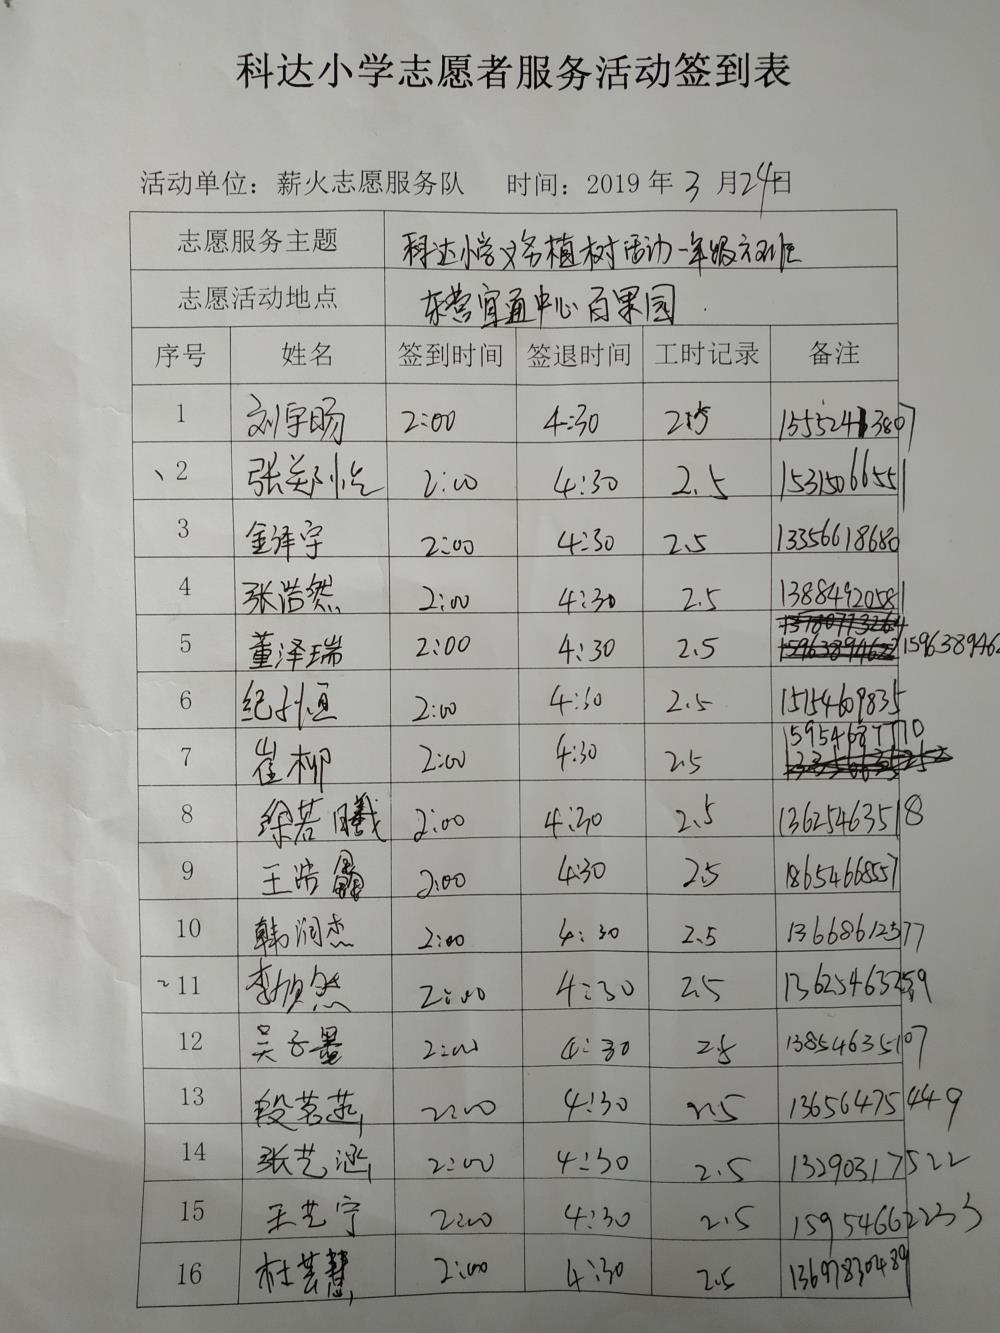 科达小学志愿者服务活动签到表
活动单位：薪火志愿服务队 时间：2019年3月24日
志愿服务主题 科达小学义务植树活动一年级六班
志愿活动地点 东营宜通中心百果园
序号 姓名 签到时间 签退时间 工时记录 备注
1 刘宇旸 2:00 4:30 2.5
2 张郑小 2:00 4:30 2.5 15315066551
3 金泽宇 2:00 4:30 2.5 13356618680
4 张浩然 2:00 4:30 2.5 13884920581
5 董泽瑞 2:00 4:30 2.5
6 纪恒 2:00 4:30 2.5 15154609835
7 崔柳 2:00 4:30 2.5 15954687770
8 徐若曦 2:00 4:30 2.5 13625463518
9 王浩 2:00 4:30 2.5 18654668557
10 韩润杰 2:00 4:30 2.5 13668612577
11 李然 2:00 4:30 2.5
12 吴子墨 2:00 4:30 2.5 13854635107
13 段茗 2:00 4:30 2.5 13656475449
14 张艺涵 2:00 4:30 2.5 13290317522
15 王艺宁 2:00 4:30 2.5 15954662233
16 杜芸慧 2:00 4:30 2.5 13697830489